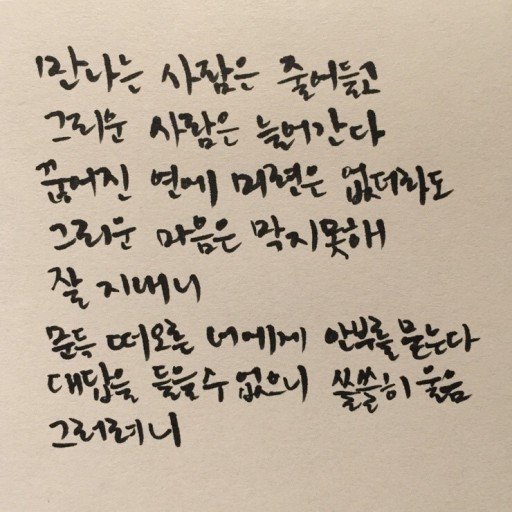 만나는 사람은 줄어들고
그리운 사람은 늘어간다
끊어진 연에 미련은 없더라도
그리운 마음은 막지못해
잘 지내니
문득 떠오른 너에게 안부를 묻는다
대답을 들을 수 없으니 쓸쓸히 웃음
그러려니